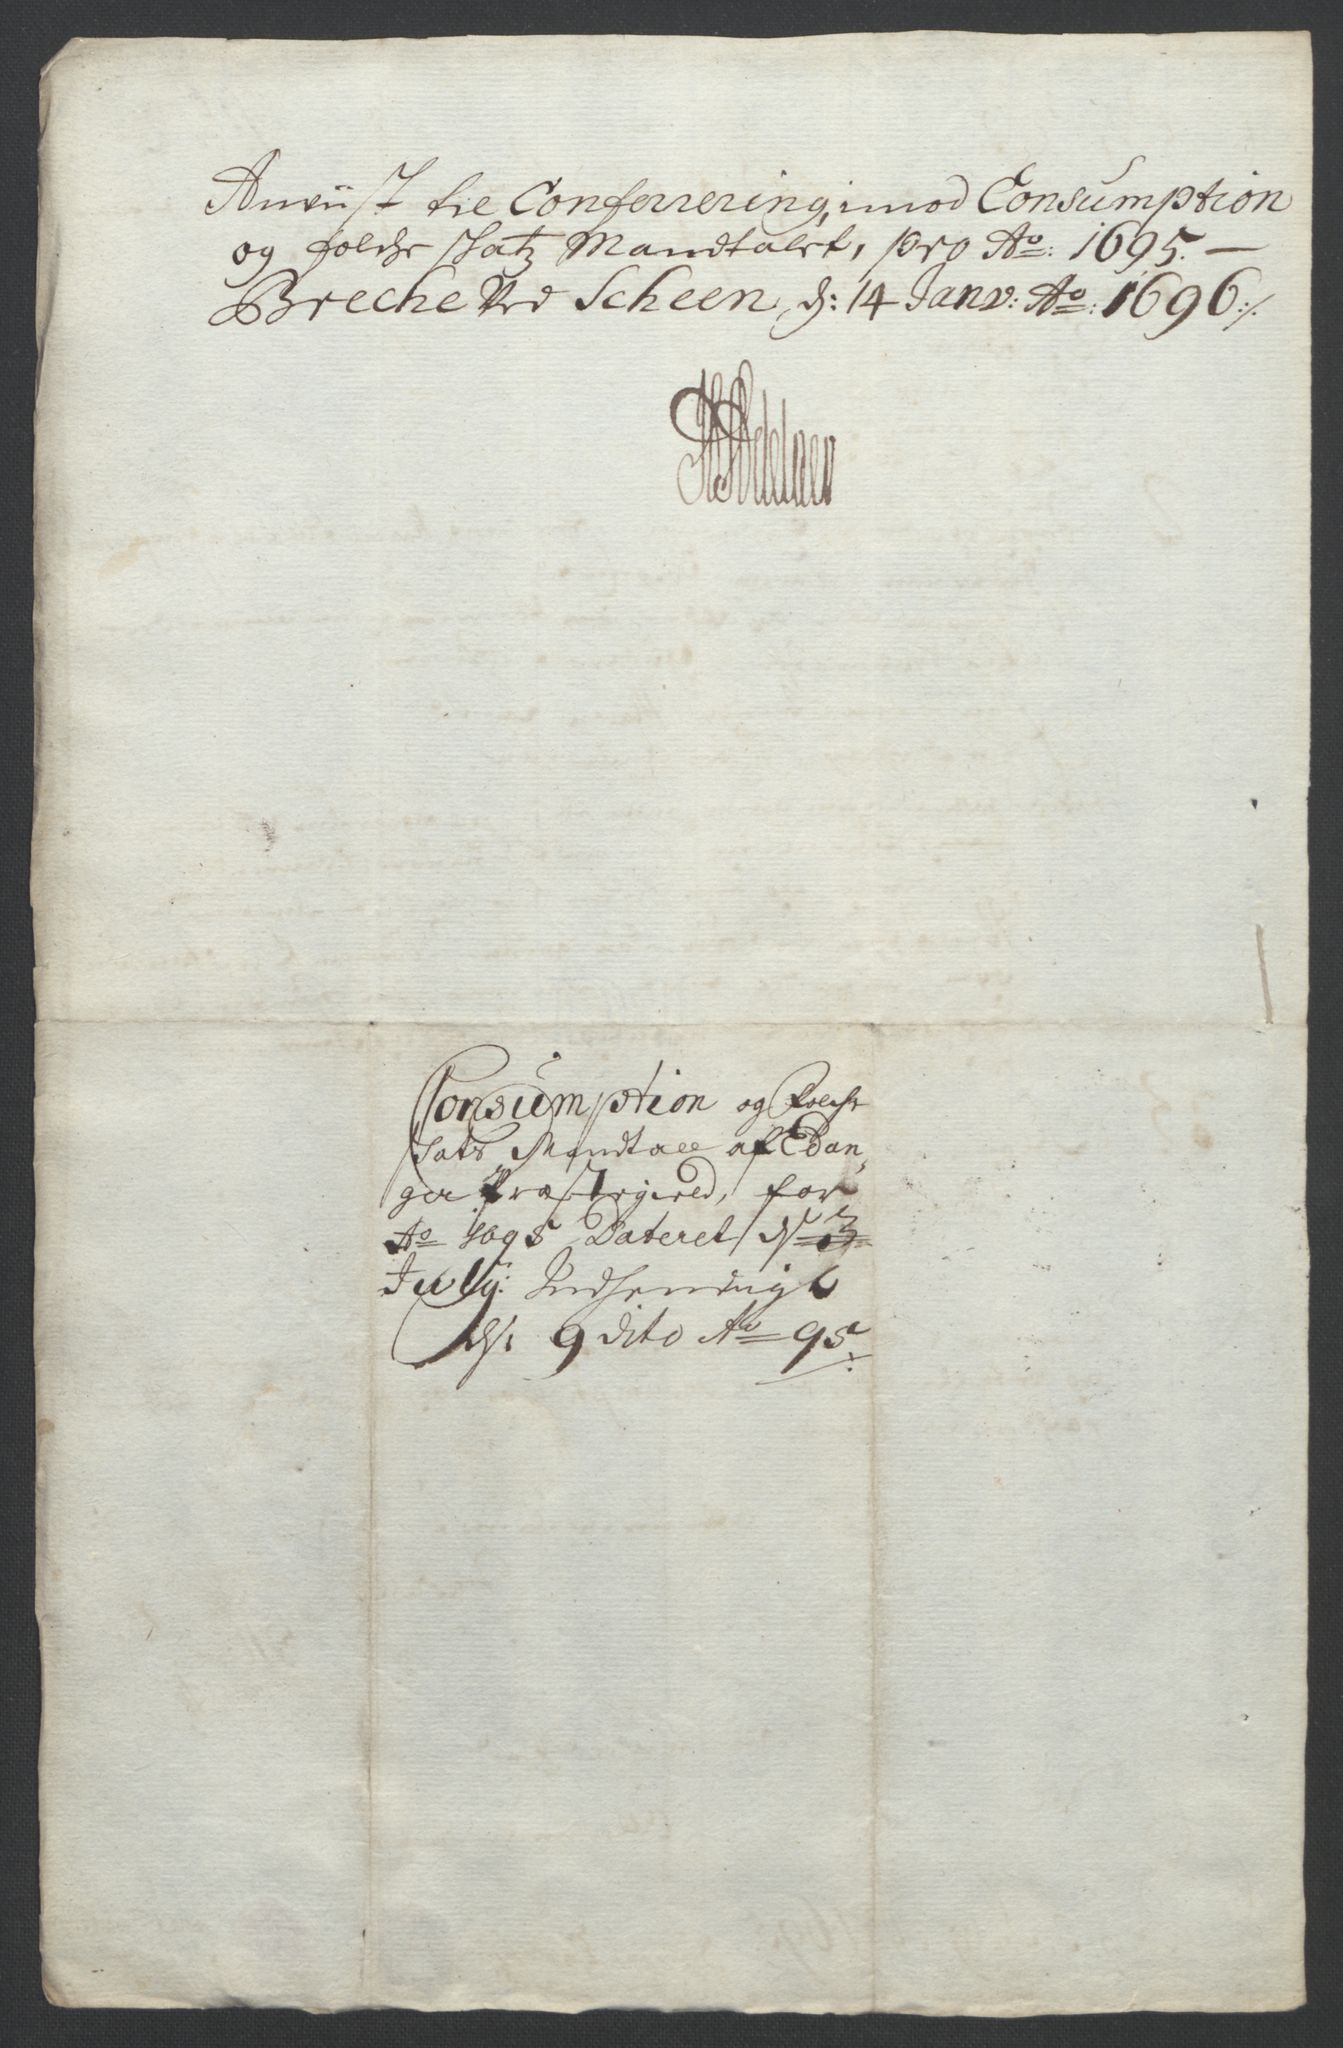 Anviist til Conferrering, imod Consumption
og folche Skatz Mandtalet, pro Ao: 1695. —
Breche Ved Scheen, d: 14 Janv: Ao: 1696 ./.
Consumption og Folche
Skats Mandtall af Edan,
ger Præstegield, for
Ao 1695 Dateret d 3
July: Indhendigt
d: 9 dito Ao 95